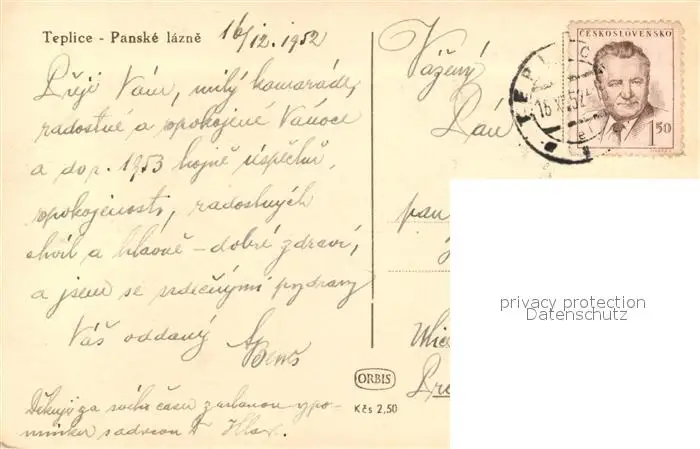 Teplice - Panské lázně
16/12. 1952
Přeji Vám, milý kamaráde,
radostné a spokojené Vánoce
a do r. 1953 hojně úspěchů,
spokojenosti, radostných
chvil a hlavně - dobré zdraví,
a jsem se srdečnými pozdravy
Váš oddaný
Děkuji za svého času zaslanou vzpo-
mínku s adresou
Vážený
Pán
pan
ČESKOSLOVENSKO
1.50
privacy protection
Datenschutz
ORBIS
Kčs 2,50